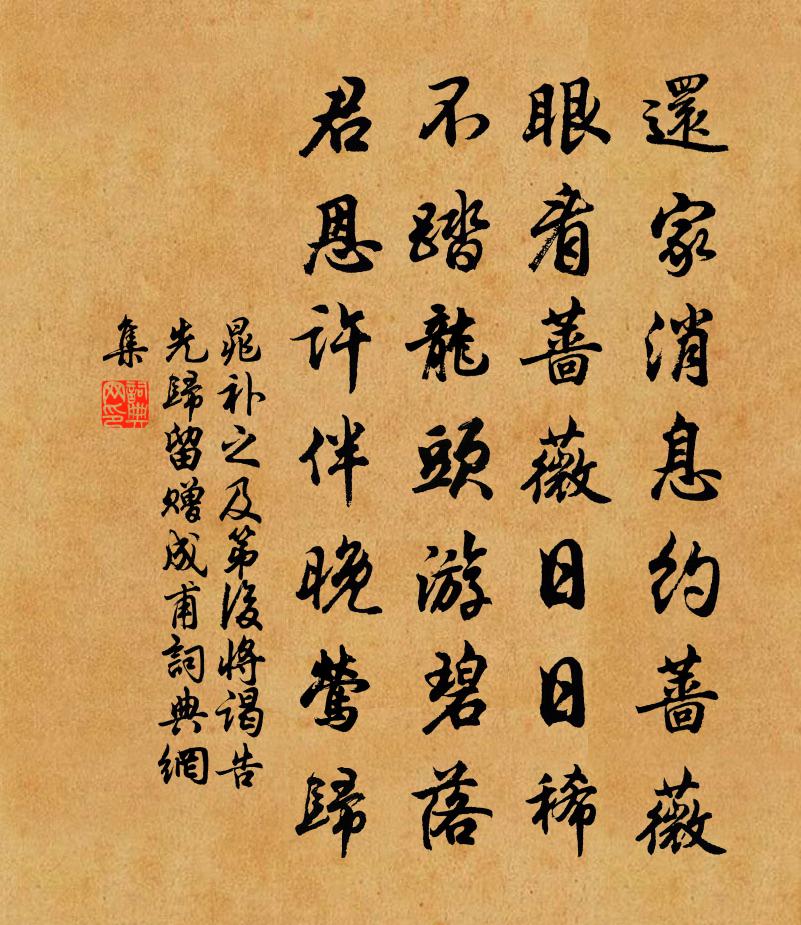 還家消息約薔薇
眼看薔薇日日稀
不踏龍頭游碧落
君恩許伴晚鶯歸
晁補之及第後將謁告
先歸留贈成甫詞典網
集
詞典網印